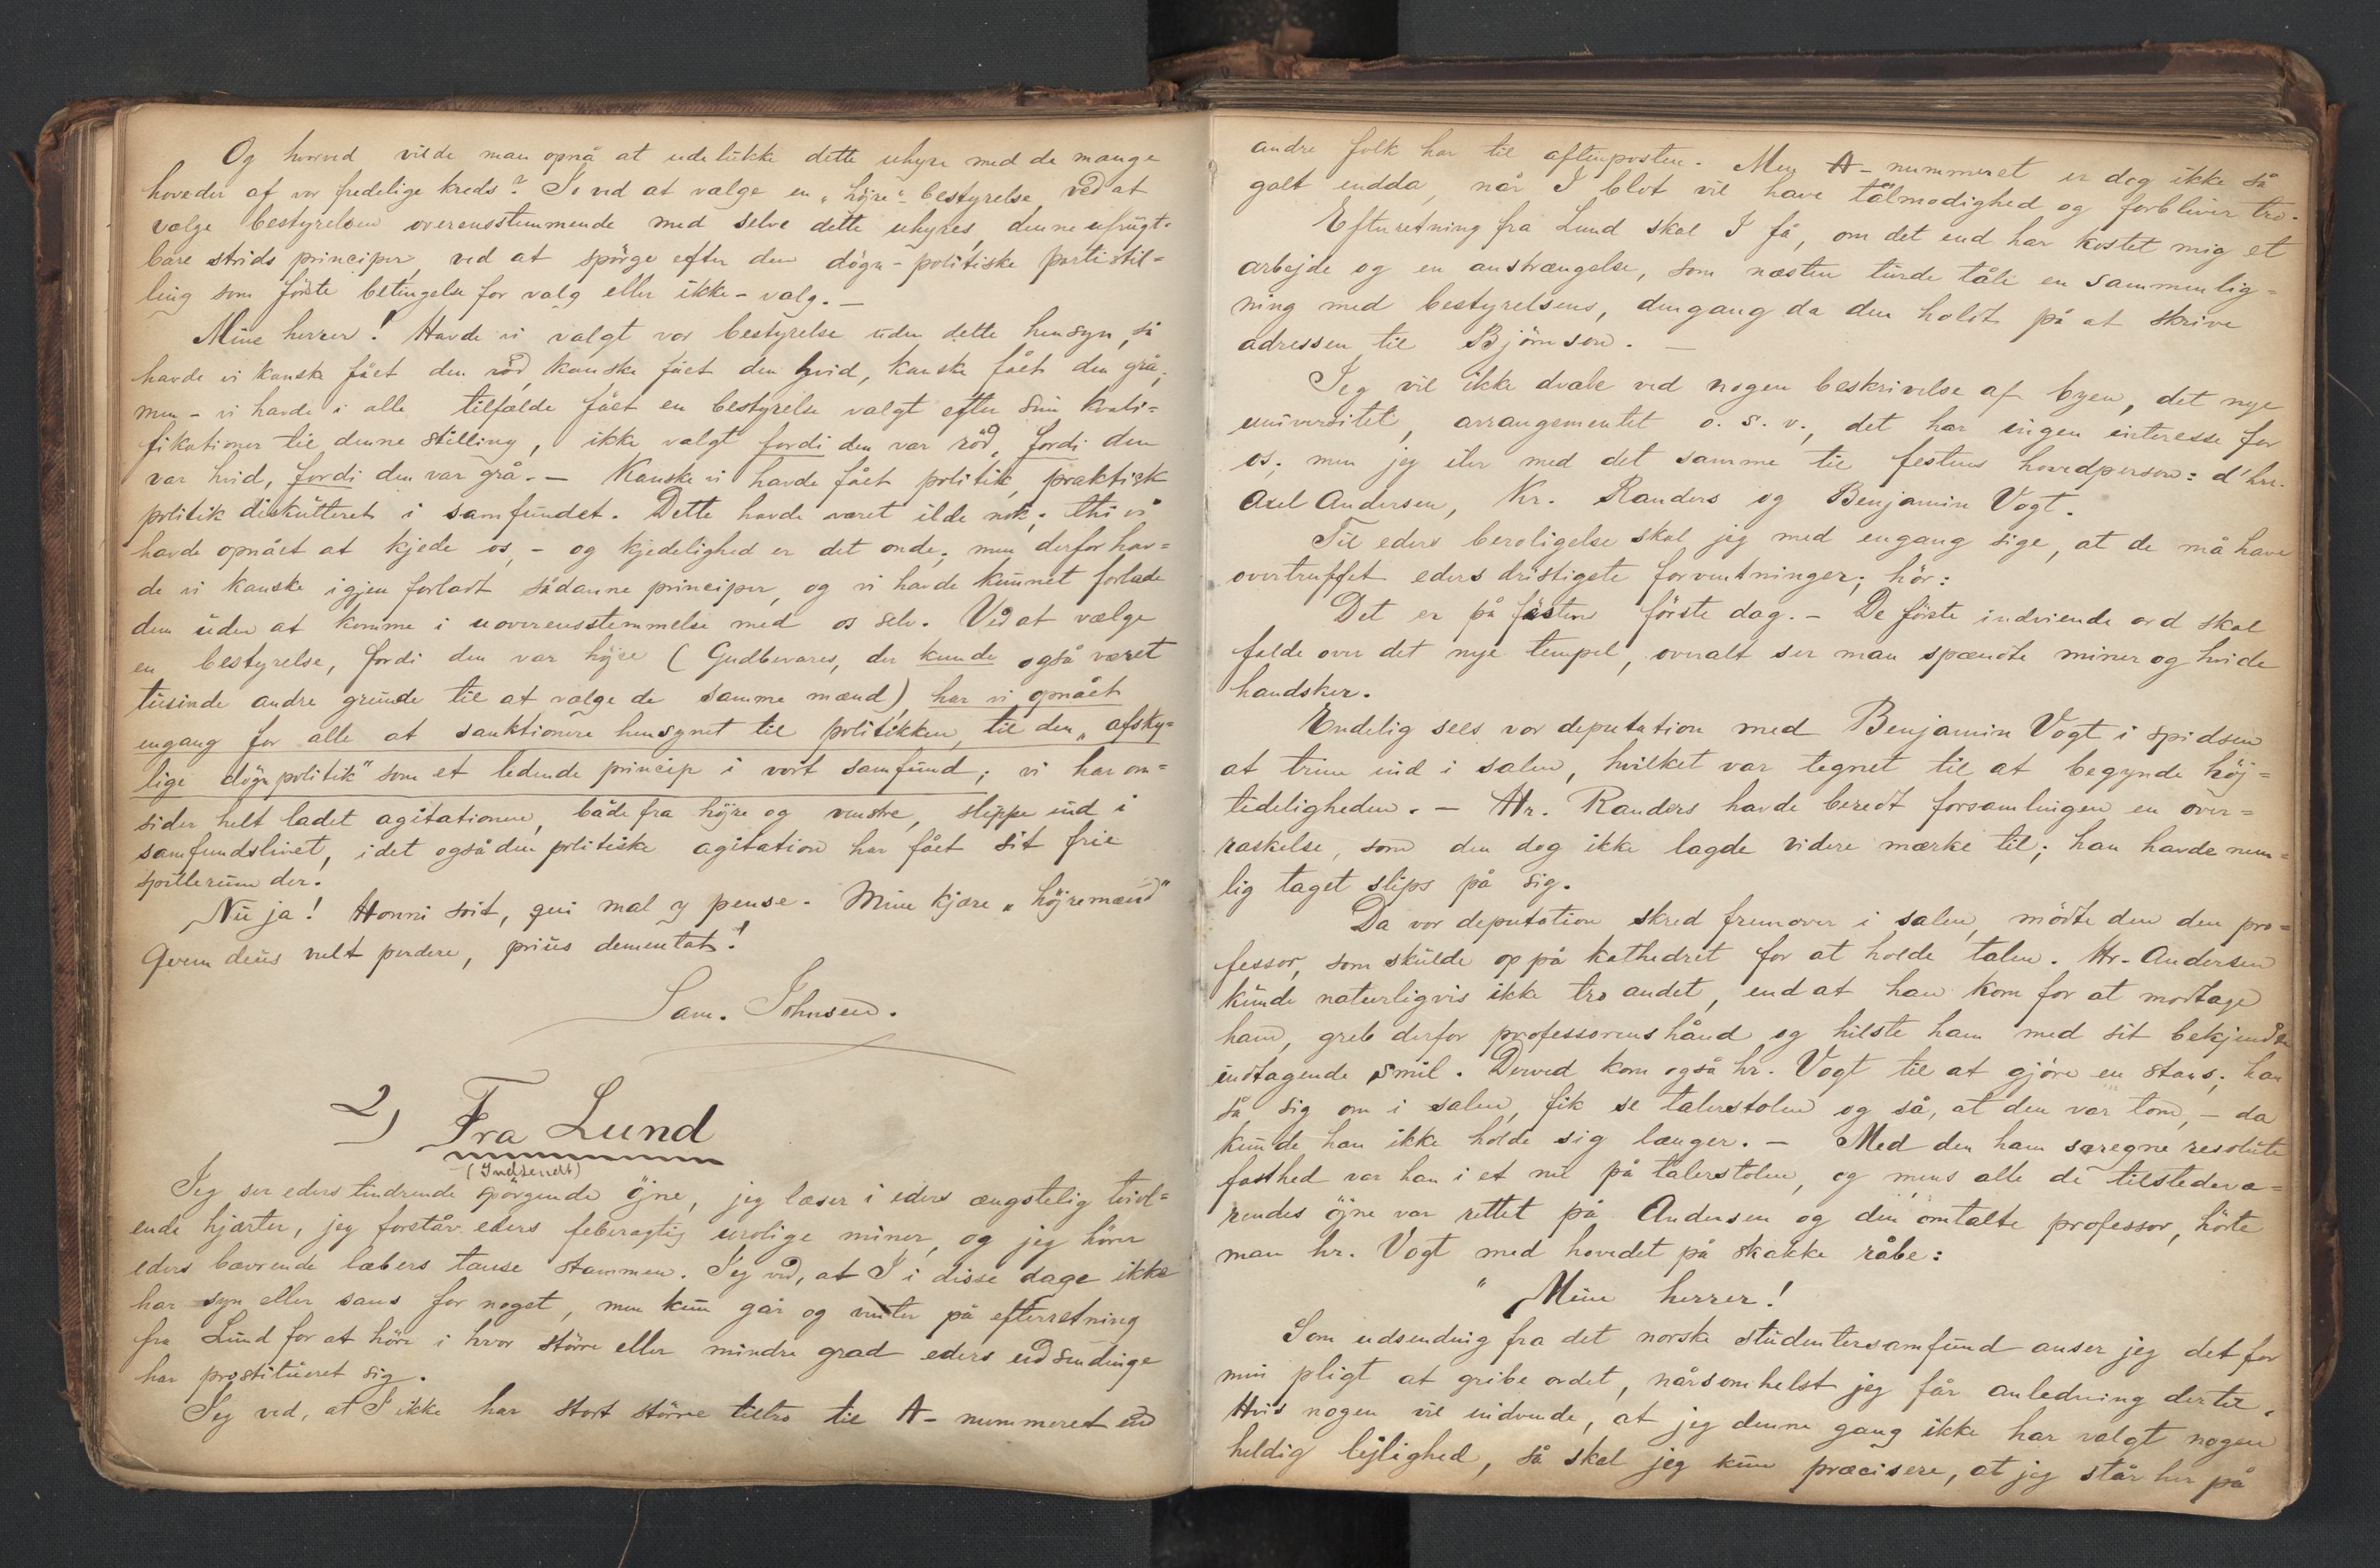 Og hvorved vilde man opnå at udelukke dette uhyre med de mange
hoveder af vor fredelige kreds? Jo ved at vælge en „höjre"-bestyrelse, ved at
vælge bestyrelsen overensstemmende med selve dette uhyres, denne ufrugt-
bare strids principer, ved at spörge efter den dögn-politiske partistil-
ling som förste betingelse for valg eller ikke-valg. —
Mine herrer! Havde vi valgt vor bestyrelse uden dette hensyn, så
havde vi kanske fået den röd, kanske fået den hvid, kanske fået den grå,
men - vi havde i alle tilfælde fået en bestyrelse valgt efter sin kvali-
fikationer til denne stilling, ikke valgt fordi den var röd, fordi den
var hvid, fordi den var grå. — Kanske vi havde fået politik, praktisk
politik diskutteret i samfundet. Dette havde været ilde nok; thi vi
havde opnået at kjede os, - og kjedelighed er det onde; men derfor hav-
de vi kanske igjen forladt sådanne principer, og vi havde kunnet forlade
dem uden at komme i uoverensstemmelse med os selv. Ved at vælge
en bestyrelse, fordi den var höjre (Gudbevares, der kunde også været
tusinde andre grunde til at vælge de samme mænd), har vi opnået
engang for alle at sanktionere hensynet til politikken, til den „afsky-
lige dögnpolitik" som et ledende princip i vort samfund; vi har om-
sider helt ladet agitationen, både fra höjre og venstre, slippe ind i
samfundslivet, idet også den politiske agitation har fået sit frie
spillerum der.
Nu ja! Honni soit, qui mal y pense. Mine kjære „höjremænd"
Qvem deus vult perdere, prius dementat!
Sam. Johnsen.
2) Fra Lund
(Indsendt)
Jeg ser eders tindrende spörgende öjne, jeg læser i eders ængstelig tvivl-
ende hjærter, jeg forstår eders feberagtig urolige miner, og jeg hörer
eders bævrende læbers tause stammen. Jeg ved, at I i disse dage ikke
har syn eller sans for noget, men kun går og venter på efterretning
fra Lund for at höre i hvor större eller mindre grad eders udsendinge
har prostitueret sig.
Jeg ved, at I ikke har stort större tiltro til A-nummeret end
andre folk har til aftenposten. Men A-nummeret er dog ikke så
galt endda, når I blot vil have tålmodighed og forbliver tro.
Efterretning fra Lund skal I få, om det end har kostet mig et
arbejde og en anstrængelse, som næsten turde tåle en sammenlig-
ning med bestyrelsens, dengang da den holdt på at skrive
adressen til Björnson. —
Jeg vil ikke dvæle ved nogen beskrivelse af byen, det nye
universitet, arrangementet o.s.v., det har ingen interesse for
os; men jeg iler med det samme til festens hovedperson: d'hrr.
Axel Andersen, Kr. Randers og Benjamin Vogt.
Til eders beroligelse skal jeg med engang sige, at de må have
overtruffet eders dristigste forventninger; hör:
Det er på festens förste dag. - De förste indviende ord skal
falde over det nye tempel, overalt ser man spændte miner og hvide
handsker.
Endelig sees vor deputation med Benjamin Vogt i spidsen
at trine ind i salen, hvilket var tegnet til at begynde höj-
tideligheden. — Hr. Randers havde beredt forsamlingen en over-
raskelse, som den dog ikke lagde videre mærke til; han havde nem-
lig taget slips på sig.
Da vor deputation skred fremover i salen, mödte den den pro-
fessor, som skulde op på kathedret for at holde talen. Hr. Andersen
kunde naturligvis ikke tro andet, end at han kom for at modtage
ham, greb derfor professorens hånd og hilste ham med sit bekjendte
indtagende smil. Derved kom også hr. Vogt til at gjöre en stans; han
så sig om i salen, fik se talerstolen og så, at den var tom, - da
kunde han ikke holde sig længer. — Med den ham særegne resolute
fasthed var han i et nu på talerstolen, og mens alle de tilstedevæ-
rendes öjne var rettet på Andersen og den omtalte professor, hörte
man hr. Vogt med hovedet på skakke råbe:
"Mine herrer!
Som udsending fra det norske studentersamfund anser jeg det for
min pligt at gribe ordet, nårsomhelst jeg får anledning dertil.
Hvis nogen vil indvende, at jeg denne gang ikke har valgt nogen
heldig lejlighed, så skal jeg kun præcisere, at jeg står her på